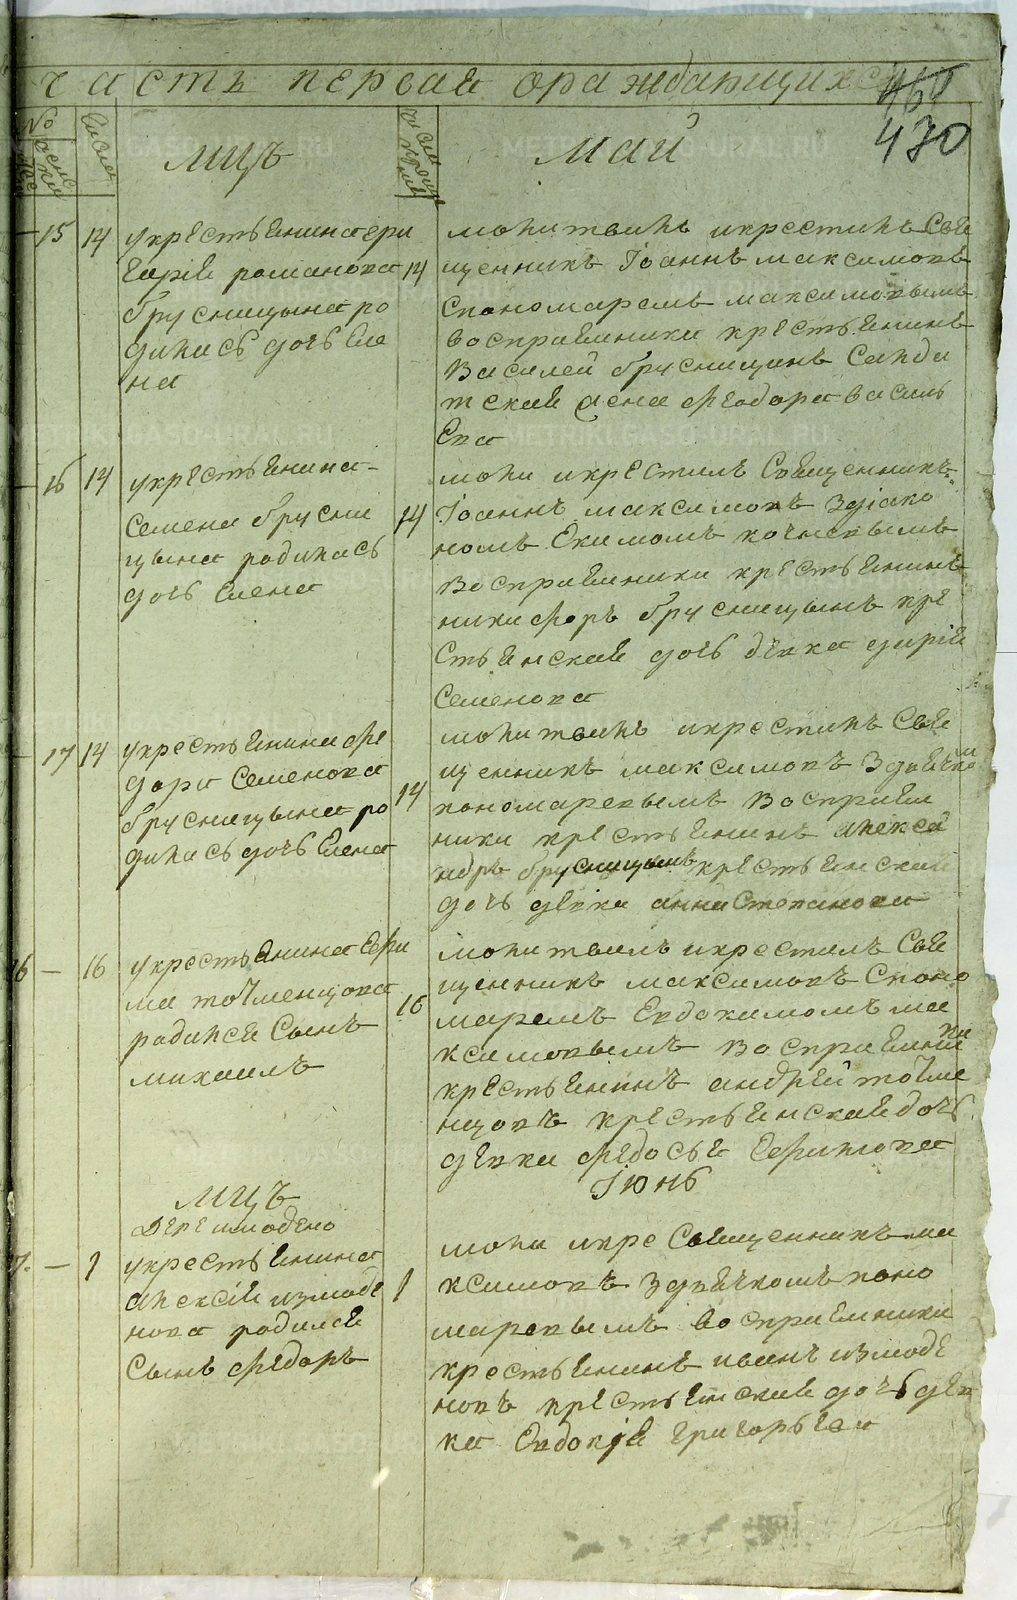 часть первая о раждающихся
465
470
№
женска
мужес
числа
мцъ
числа крещения
май
15 14 укрестьянина гри
горiя романова
брусницына ро
дилась дочь еле
на
14
молитвилъ икрестилъ свя
щенникъ Iоаннъ максимовъ
спономаремъ максимовымъ
восприемники крестьянинъ
василей брусницынъ салда
тская жена феодора василь
ева
16 14 укрестьянина
семена брусни
цына родилась
дочь елена
14
моли икрестилъ священникъ
Iоаннъ максимовъ здiако
номъ екимомъ
восприемники крестьянинъ
никифоръ брусницынъ кре
стьянская дочь девка дарiя
семенова
17 14 укрестьянина фе
дора семенова
брусницына ро
дилась дочь елена
14
молитвилъ икрестилъ свя
щенникъ максимовъ здьячкомъ
пономаревымъ восприем
ники крестьянинъ алекса
ндръ брусницынъ крестьянская
дочь девка анна степанова
16 – 16 укрестьянина ефи
ма толменцова
родился сынъ
михаилъ
16
молитвилъ икрестилъ свя
щенникъ максимовъ споно
маремъ евдокимомъ ма
ксимовымъ восприемники
крестьянинъ андрей толме
нцовъ крестьянская дочь
девка федосья ефимова
мцъ
Iюнь
дере измодено
17. – 1 укрестьянина
алексiя измоде
нова родился
сынъ федоръ
1
моли икре священникъ ма
ксимовъ здьячкомъ поно
маревымъ восприемники
крестьянинъ иванъ измоде
новъ крестьянская дочь дев
ка евдокiя григорьева
METRIKI.GASO-URAL.RU